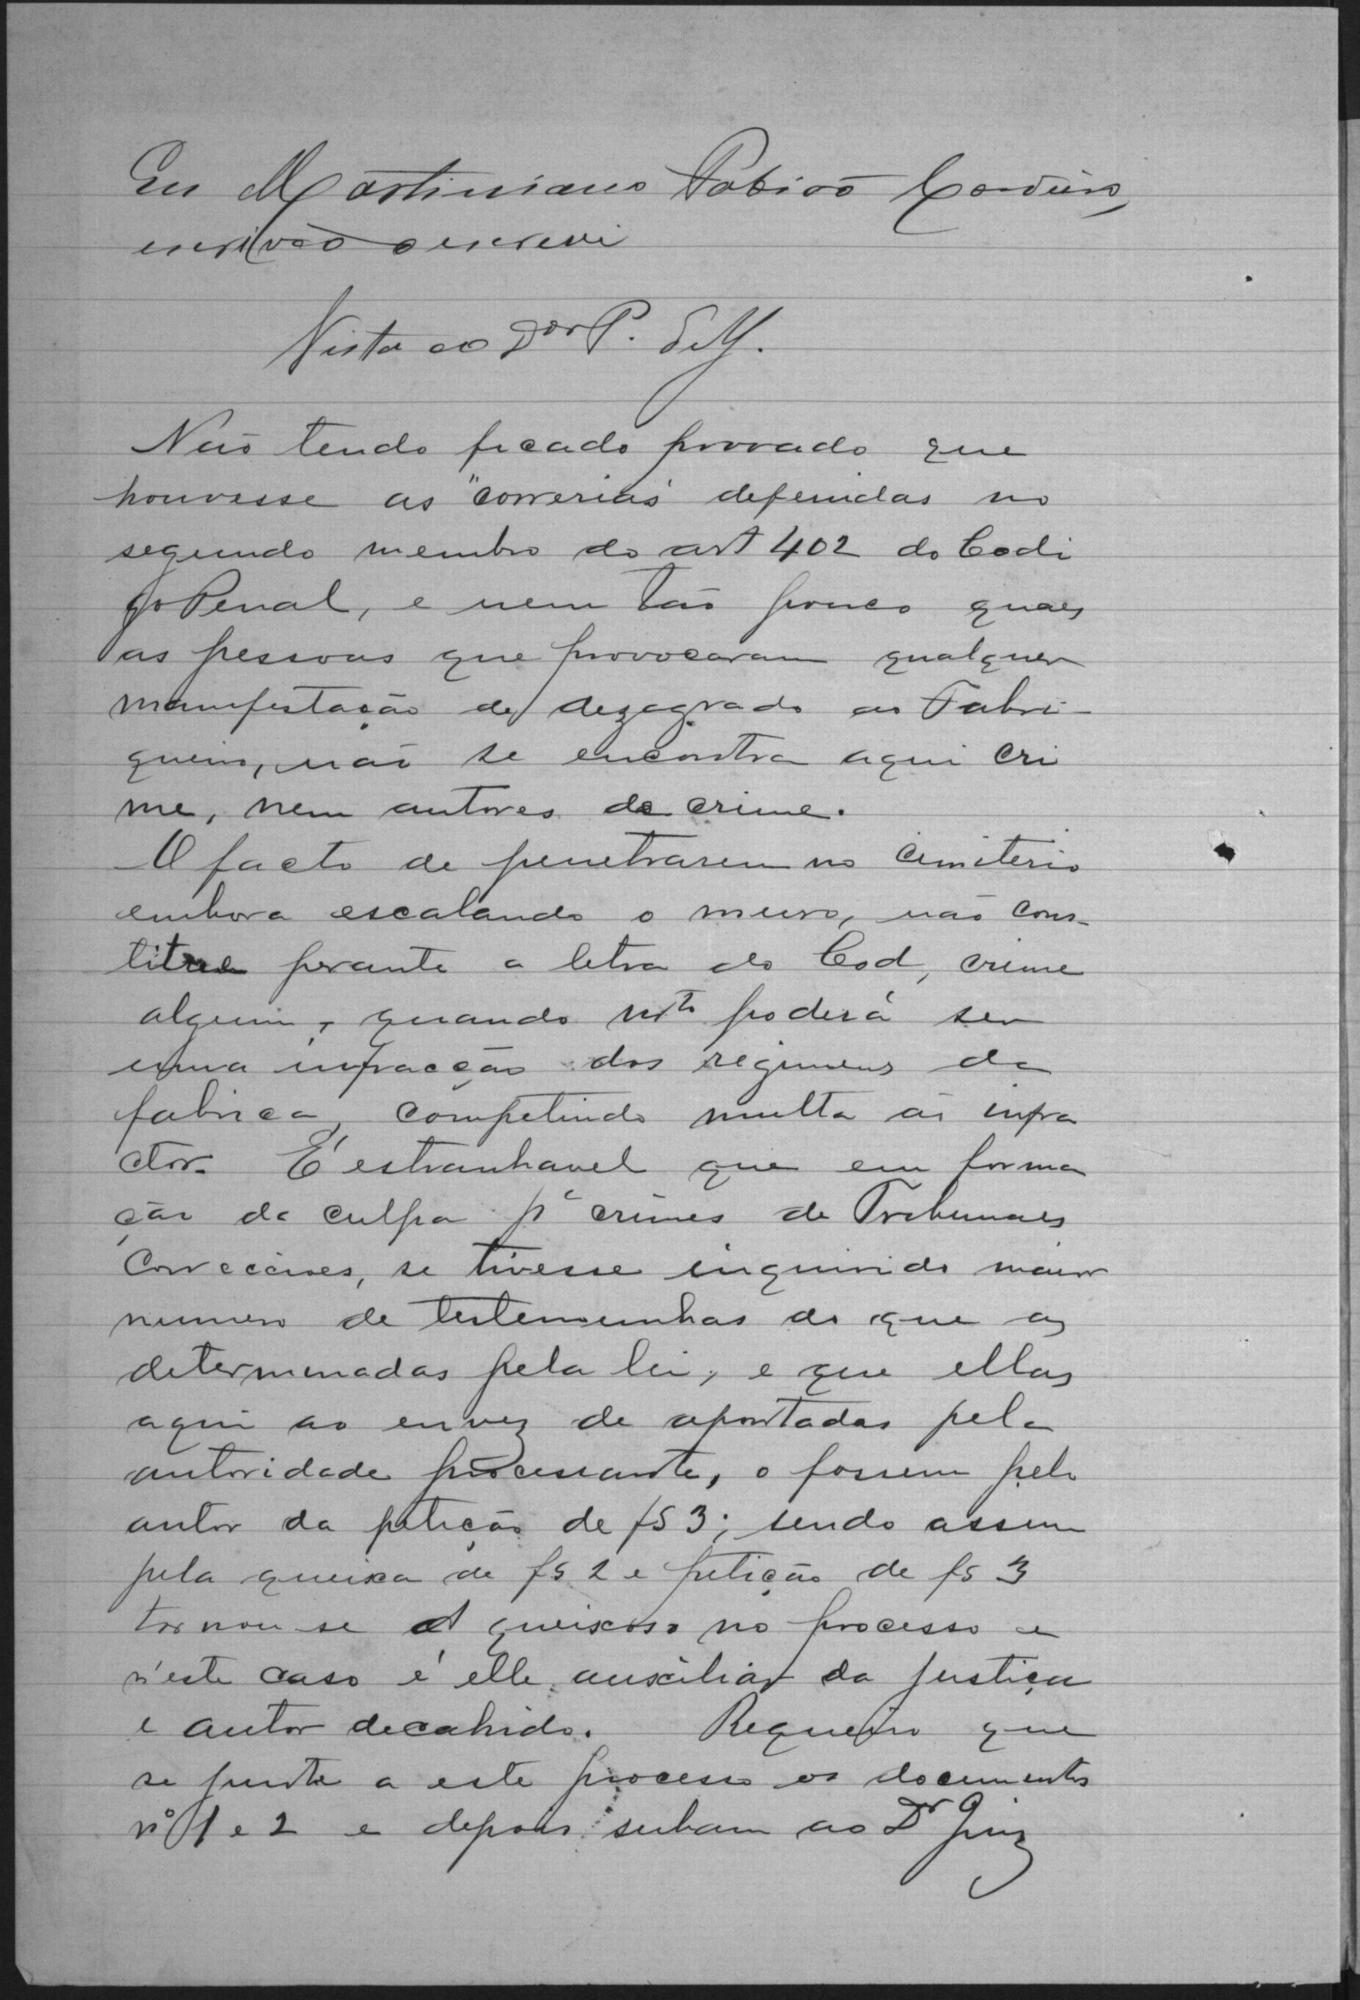 Eu Martiniano Cordeiro,
escrivão o escrevi
Vista ao Dor P. P.
Não tendo ficado provado que
houvesse as "correrias" defenidas no
segundo membro do art 402 do Codi
go Penal, e nem tão pouco quaes
as pessoas que provocaram qualquer
manifestação de dezagrado ao Fabri-
queiro, não se encontra aqui cri
me, nem autores de crime.
O facto de penetrarem no cimiterio
embora escalando o muro, não cons-
titue perante a letra do Cod, crime
algum, quando mto poderá ser
uma infracção dos regimens da
fabrica, competindo multa ao infra
ctor. É estranhavel que em forma
ção da culpa pa crimes de Tribunaes
Correcionaes, se tivesse inquirido maior
numero de testemunhas do que as
determinadas pela lei, e que ellas
aqui ao envez de apontadas pela
autoridade processante, o fossem pelo
autor da petição de fs 3; sendo assim
pela queixa de fs 2 e petição de fs 3
tornou-se queixoso no processo e
n'este caso é elle auxiliar da justiça
e autor decahido. Requeiro que
se junte a este processo os documentos
nº 1 e 2 e depois subam ao Dr Juiz